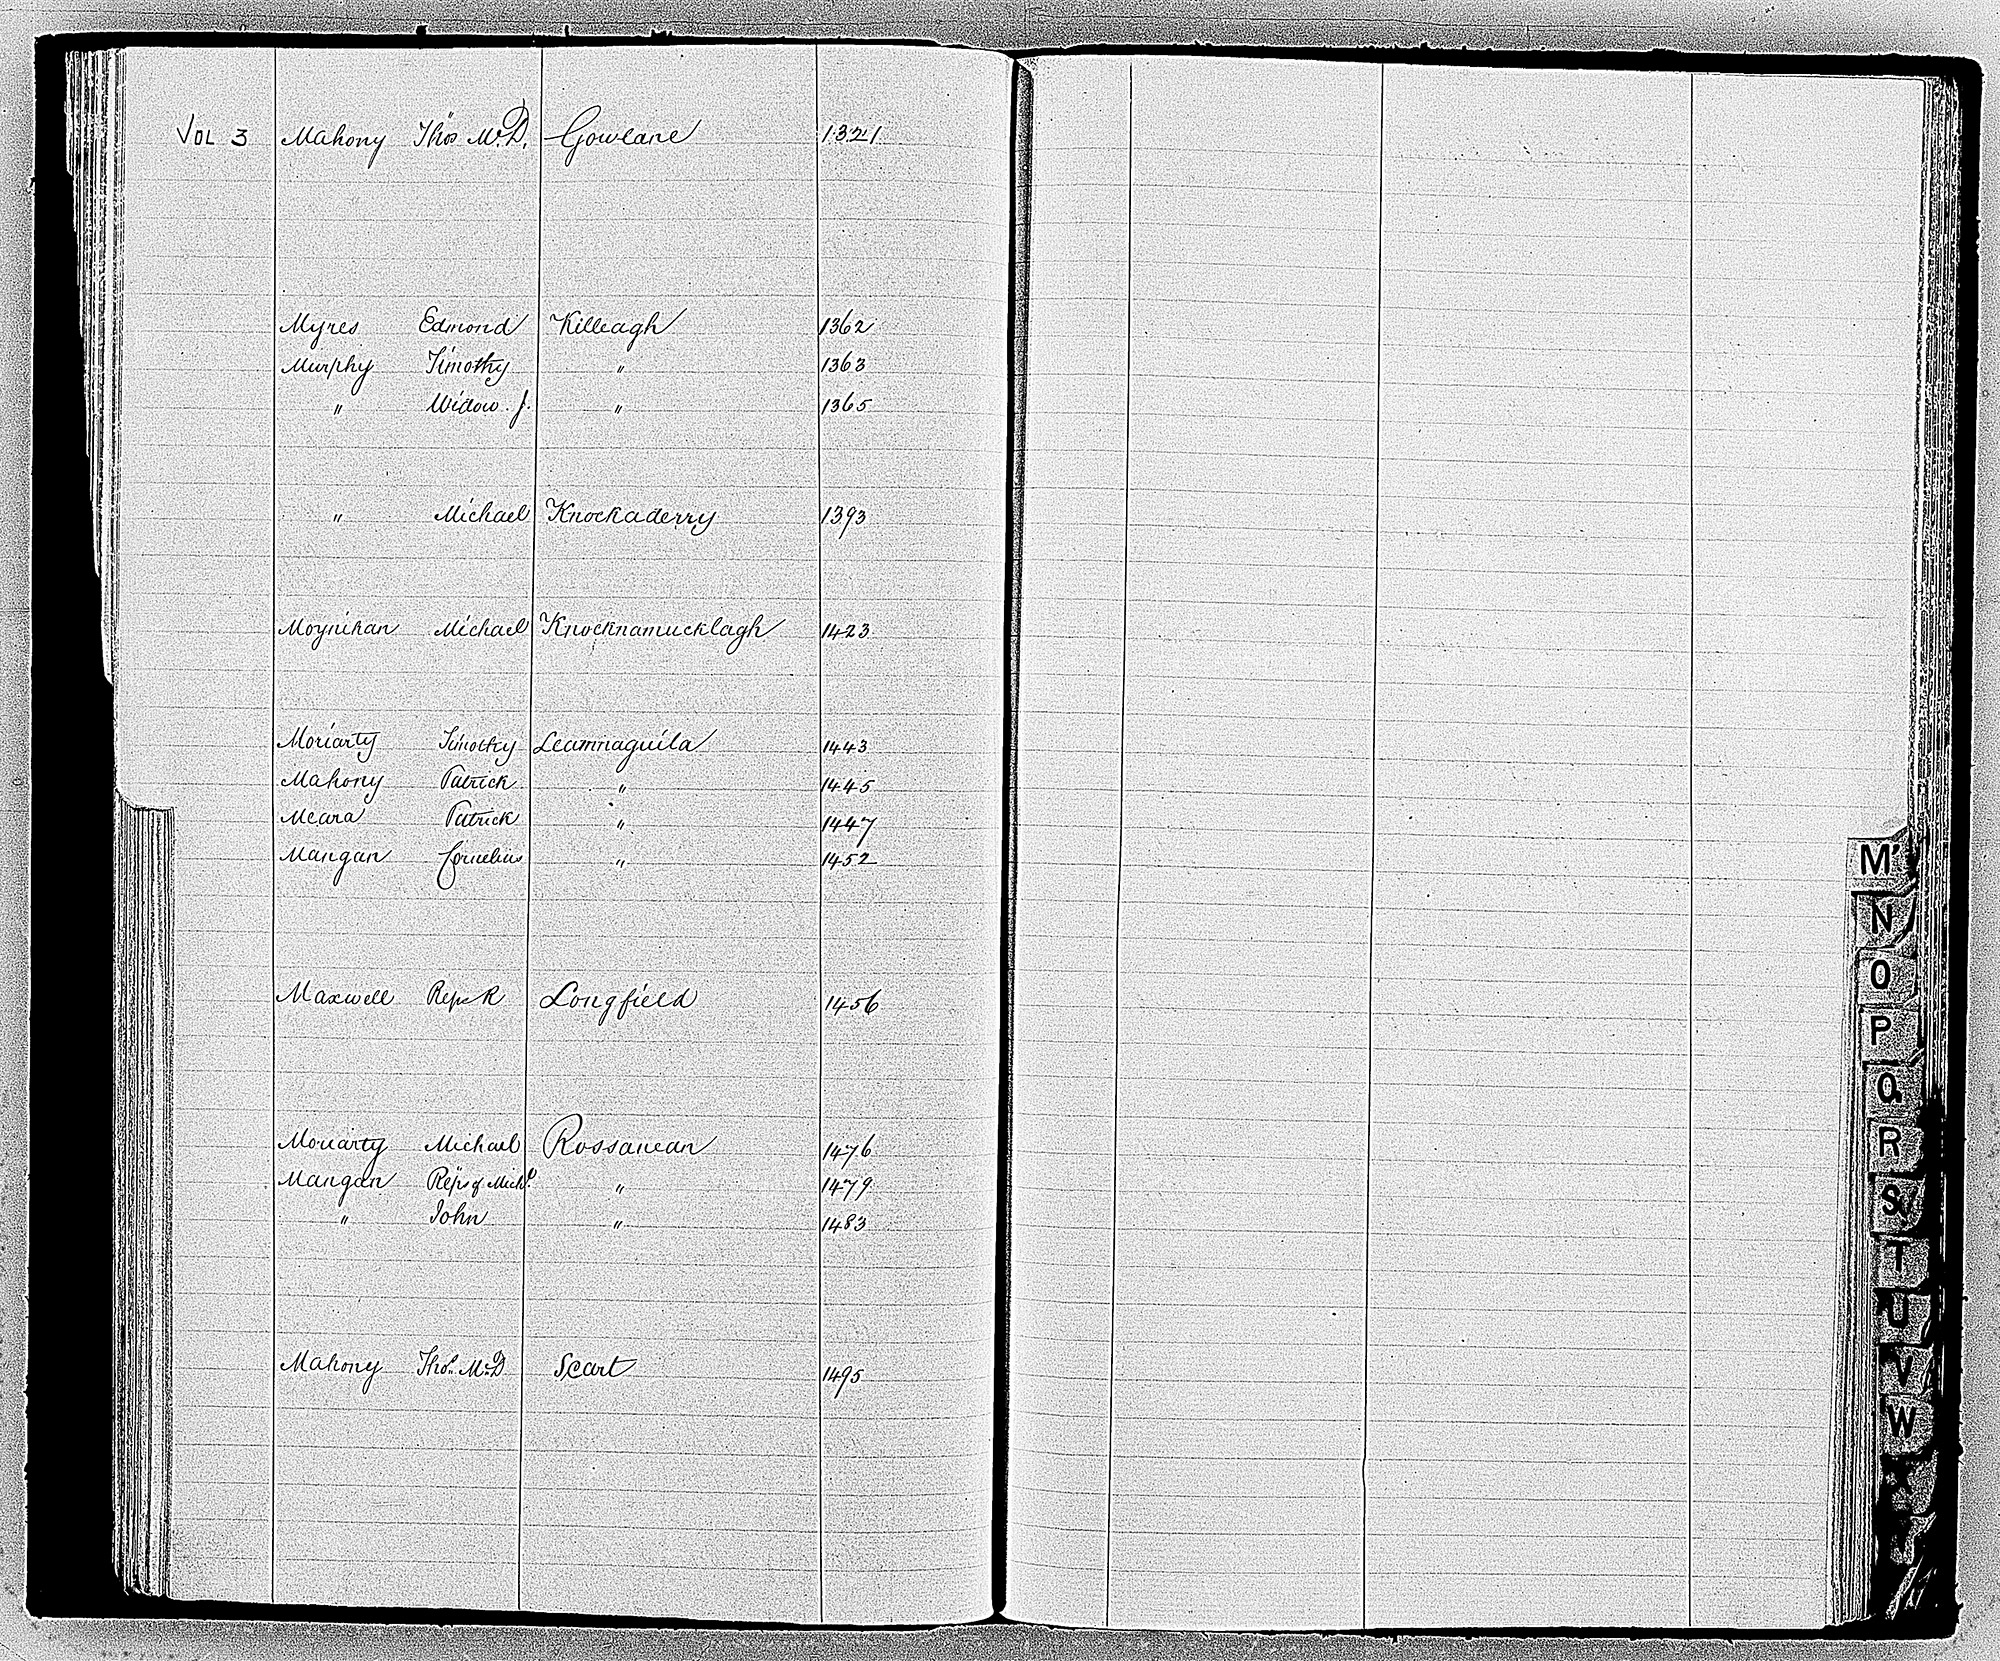 VOL 3 Mahony Thos McD. Gowlane 1321
Myres Edmond Killeagh 1362
Murphy Timothy " 1363
" Widow J. " 1365
" Michael Knockaderry 1393
Moynihan Michael Knocknamucklagh 1423
Moriarty Timothy Leamnaguila 1443
Mahony Patrick " 1445
Meara Patrick " 1447
Mangan Cornelius " 1452
Maxwell Reps R Longfield 1456
Moriarty Michael Rossanean 1476
Mangan Reps of Michl. " 1479
" John " 1483
Mahony Thos. McD Scart 1495
M'
N
O
P
Q
R
S
T
U
V
W